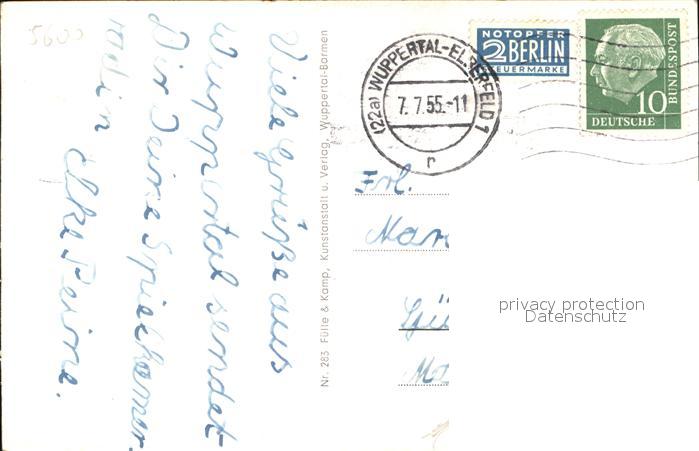 5600
Viele Grüße aus
Wuppertal sendet
Dir Deine Spielkamer-
radin
Elke
Nr. 283 Fülle & Kamp, Kunstanstalt u. Verlag, Wuppertal-Barmen
(22a) WUPPERTAL-ELBERFELD 1
7.7.55.-11
r
NOTOPFER
2 BERLIN
STEUERMARKE
DEUTSCHE
BUNDESPOST
10
Frl.
Mar
Ma
privacy protection
Datenschutz